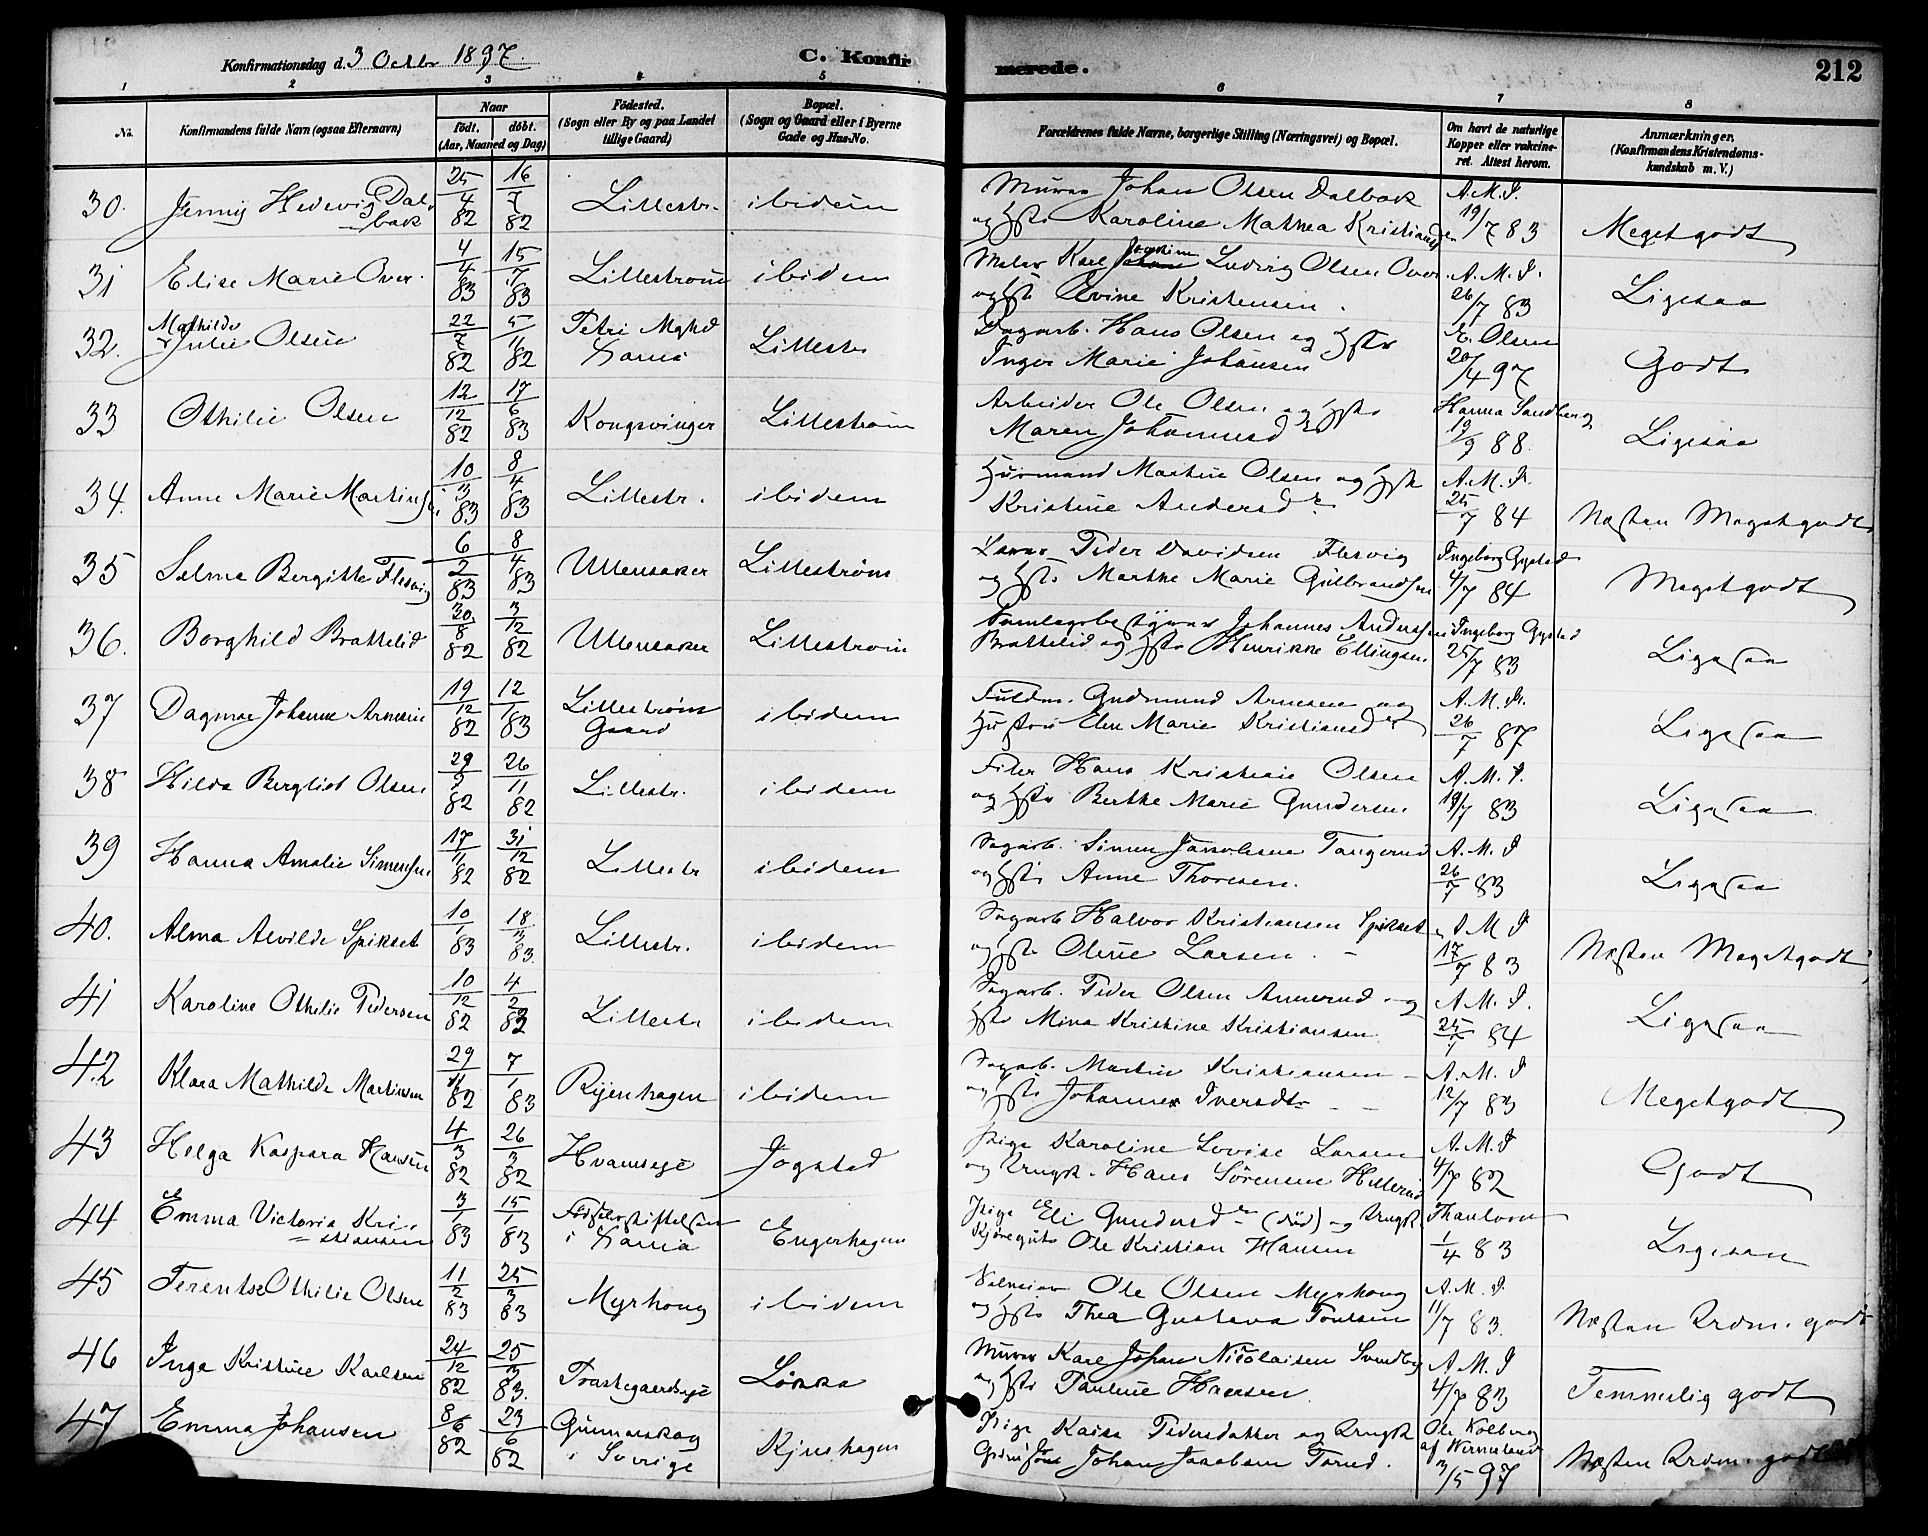 Konfirmationsdag d. 3 Octbr 1897.
C. Konfirmerede.
212
1 2 3 4 5 6 7 8
No.
Konfirmandens fulde Navn (ogsaa Efternavn)
Naar
födt. döbt.
(Aar, Maaned og Dag)
Födested.
(Sogn eller By og paa Landet
tillige Gaard)
Bopæl.
(Sogn og Gaard eller i Byerne
Gade og Hus-No.
Forældrenes fulde Navne, borgerlige Stilling (Næringsvei) og Bopæl.
Om havt de naturlige
Kopper eller vaccineret. Attest herom.
Anmærkninger,
(Konfirmandens Kristendomskundskab m. V.)
30. Jenny Hedevig Dalbak 25/4 82 16/7 82 Lillestr. ibidem
Murer Johan Olsen Dalbak
og Hstr Karoline Mathea Kristiansen
A.M.I. 19/7 83 Megetgodt
31 Elise Marie Over. 4/4 83 15/7 83 Lillestrøm ibidem
Maler Karl Joachim Ludvig Olsen Over
og Hst Evine Kristensen.
A.M.I. 26/7 83 Ligesaa
32. Mathilde Julie Olsen 22/7 82 5/11 82 Petri Mghd Hamar Lillestr
Dagarb. Hans Olsen og Hstr
Inger Marie Johansen
E. Olsen 20/4 97 Godt
33 Othilie Olsen 12/12 82 17/6 83 Kongsvinger Lillestrøm
Arbeider Ole Olsen og Hstr
Maren Johannesdr
Hanna Sandberg 19/9 88. Ligesaa
34. Anne Marie Martinsen 10/3 83 8/4 83 Lillestr. ibidem
Husmand Martin Olsen og Hst
Kristine Andersdr
A.M.I. 25/7 84 Næsten Megetgodt
35 Selma Bergitte Flesvig 6/2 83 8/4 83 Ullensaker Lillestrøm
Peder Davidsen Flesvig
og Hstr Marthe Marie Gulbrandsen
Ingeborg Gystad 4/7 84 Megetgodt
36. Borghild Brattelid 30/8 82 3/12 82 Ullensaker Lillestrøm
Johannes Anderssen
Brattelid og Hstr Henrikke Ellingsen.
Ingeborg Gystad 25/7 83 Ligesaa
37 Dagmar Johanne Arnesen 19/12 82 12/1 83 Lillestrøm Gaard ibidem
Fuldm. Gudmund Arnesen og
Hustru Elen Marie Kristiansdr
A.M.I. 26/7 87 Ligesaa
38 Hilda Bergliot Olsen 29/9 82 26/11 82 Lillestr. ibidem
Filer Hans Kristian Olsen
og Hstr Berthe Marie Gundersen.
A.M.I. 19/7 83 Ligesaa
39 Hanna Amalie Simensen 17/11 82 31/12 82 Lillestr ibidem
Sagarb. Simen Jacobsen Tangerud
og Hstr Anne Thoresen.
A.M.I 26/7 83 Ligesaa
40. Alma Alvilde Spikset 10/1 83 18/3 83. Lillestr. ibidem
Sagarb Halvor Kristiansen Spikset
og Hstr Oline Larsen.
A M I 17/7 83 Næsten Megetgodt
41 Karoline Othilie Pedersen 10/12 82 4/2 83 Lillestr ibidem
Sagarb. Peder Olsen Amerud og
Hstr Mina Kristine Kristiansen
A.M.I. 25/7 84 Ligesaa
42 Klara Mathilde Martinsen 29/11 82 7/1 83 Ryenhagen ibidem
Sagarb. Martin Kristiansen
og Hstr Johanne Iversdtr
A.M.I 12/7 83 Megetgodt
43 Helga Kaspara Hansen 4/3 82 26/3 82 Hvamseje Jogstad
Pige Karoline Lovise Larsen
og Ungk. Hans Sørensen Hellerud
A.M.I 4/7 82 Godt
44 Emma Victoria Kristiansen 3/1 83 15/1 83 Fødselsstiftelsen i Kania Engerhagen
Pige Eli Gundersdr (død) og Ungk
Kjøregut Ole Kristian Hansen
Thaulow 1/4 83 Ligesaa
45 Terentse Othilie Olsen 11/2 83 25/3 83 Myrhaug ibidem
Ole Olsen Myrhaug
og Hstr Thea Gustava Poulsen
A.M.I. 11/7 83. Næsten Udm. godt
46 Inga Kristine Karlsen 24/12 82 25/3 83. Trastegaardseje Løkka
Murer Karl Johan Nicolaisen Svendby
og Hstr Pauline Hansen
A.M.I 4/7 83 Temmelig godt
47 Emma Johansen 8/6 82 23/6 82 Gunnarskog i Sverige Kjushagen
Pige Kaisa Pedersdatter og Ungk
Johan Jacobsen Torud.
Ole Kolberg af Vermeland 3/5 97 Næsten Udm. godt